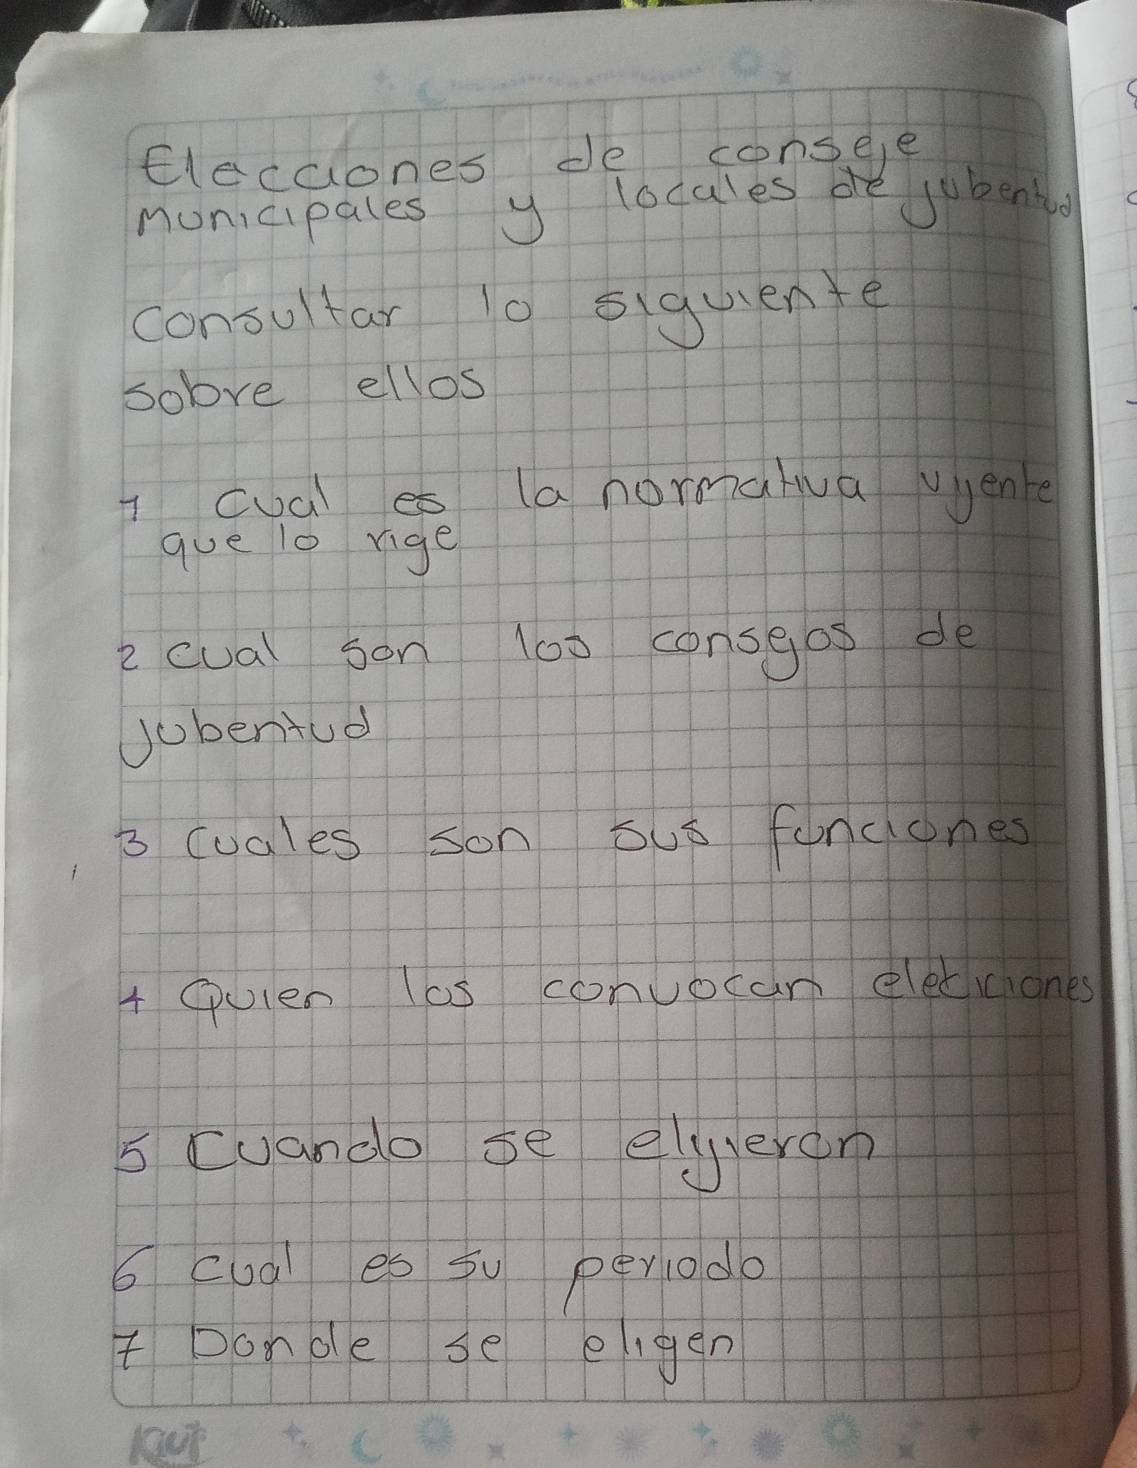 Elecciones de conseje
municipales y locales de jubentud
consultar lo siguiente
sobre ellos
1 cual es la normativa vijente
que lo rige
2 cual son los consegos de
jubentud
3 cuales son sus funciones
4 Quien los convocan eleticiones
5 Cuando se elijieron
6 cual es su periodo
7 Donde se eligen